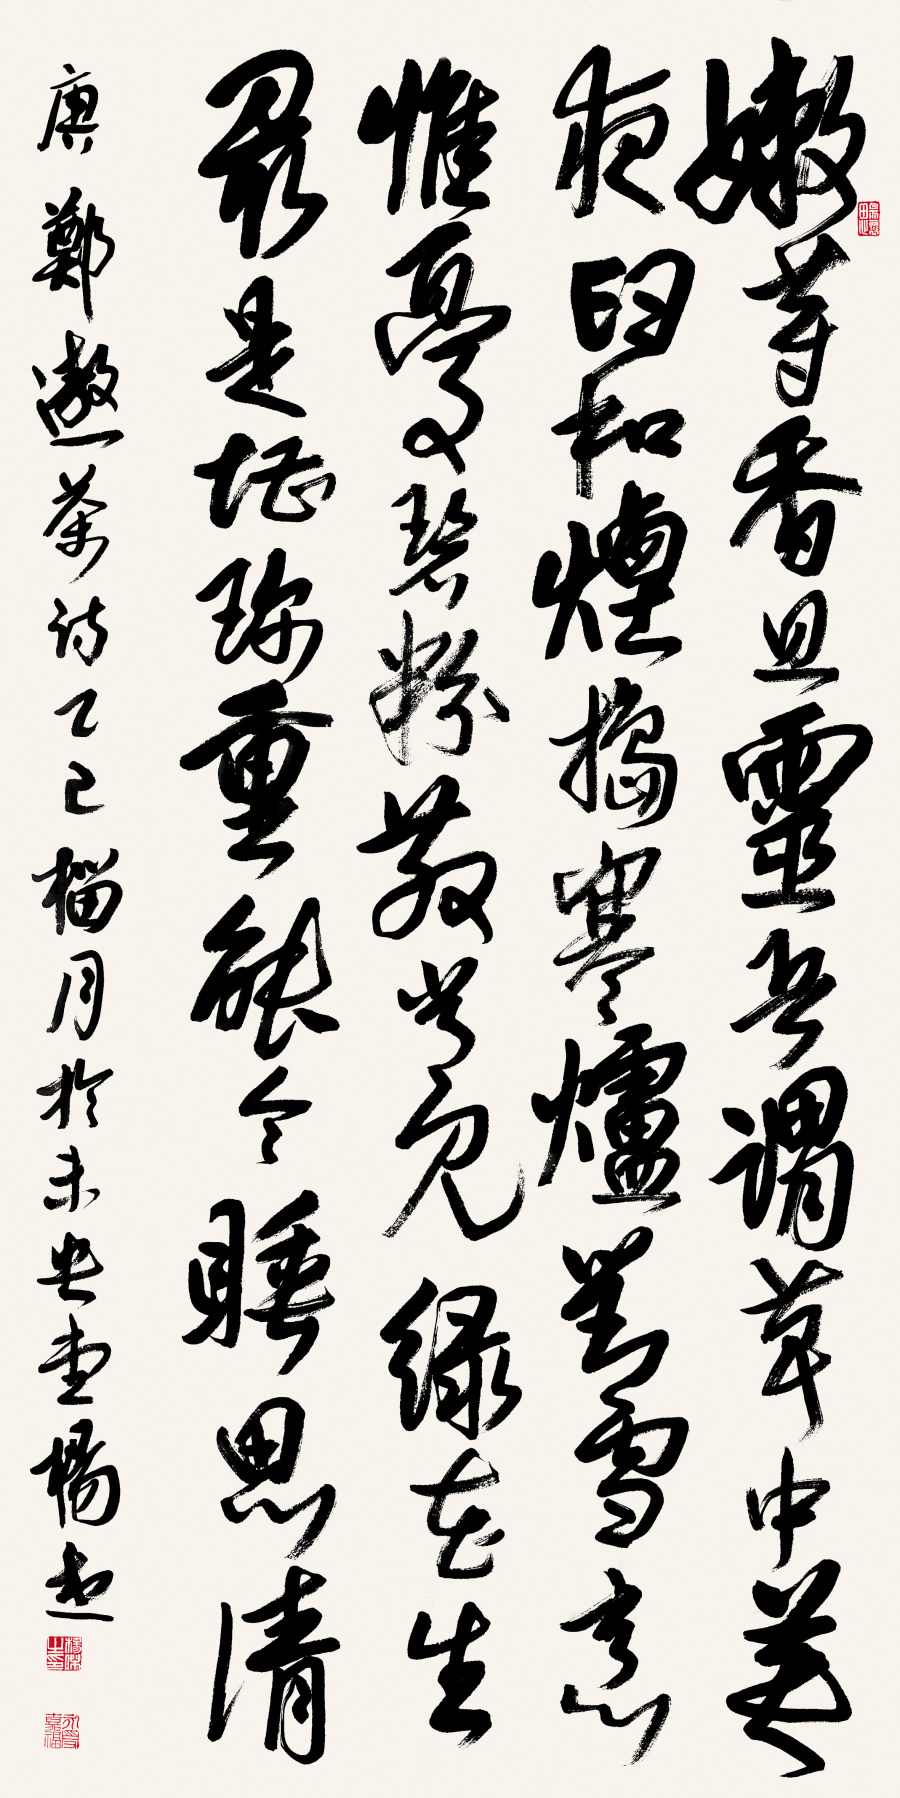 嫩芽香且靈吾謂草中英
夜臼和煙搗寒爐對雪烹
惟憂碧粉散嘗見綠花生
最是堪珍重能令睡思清
唐鄭遨茶詩乙巳榴月於未央堂楊